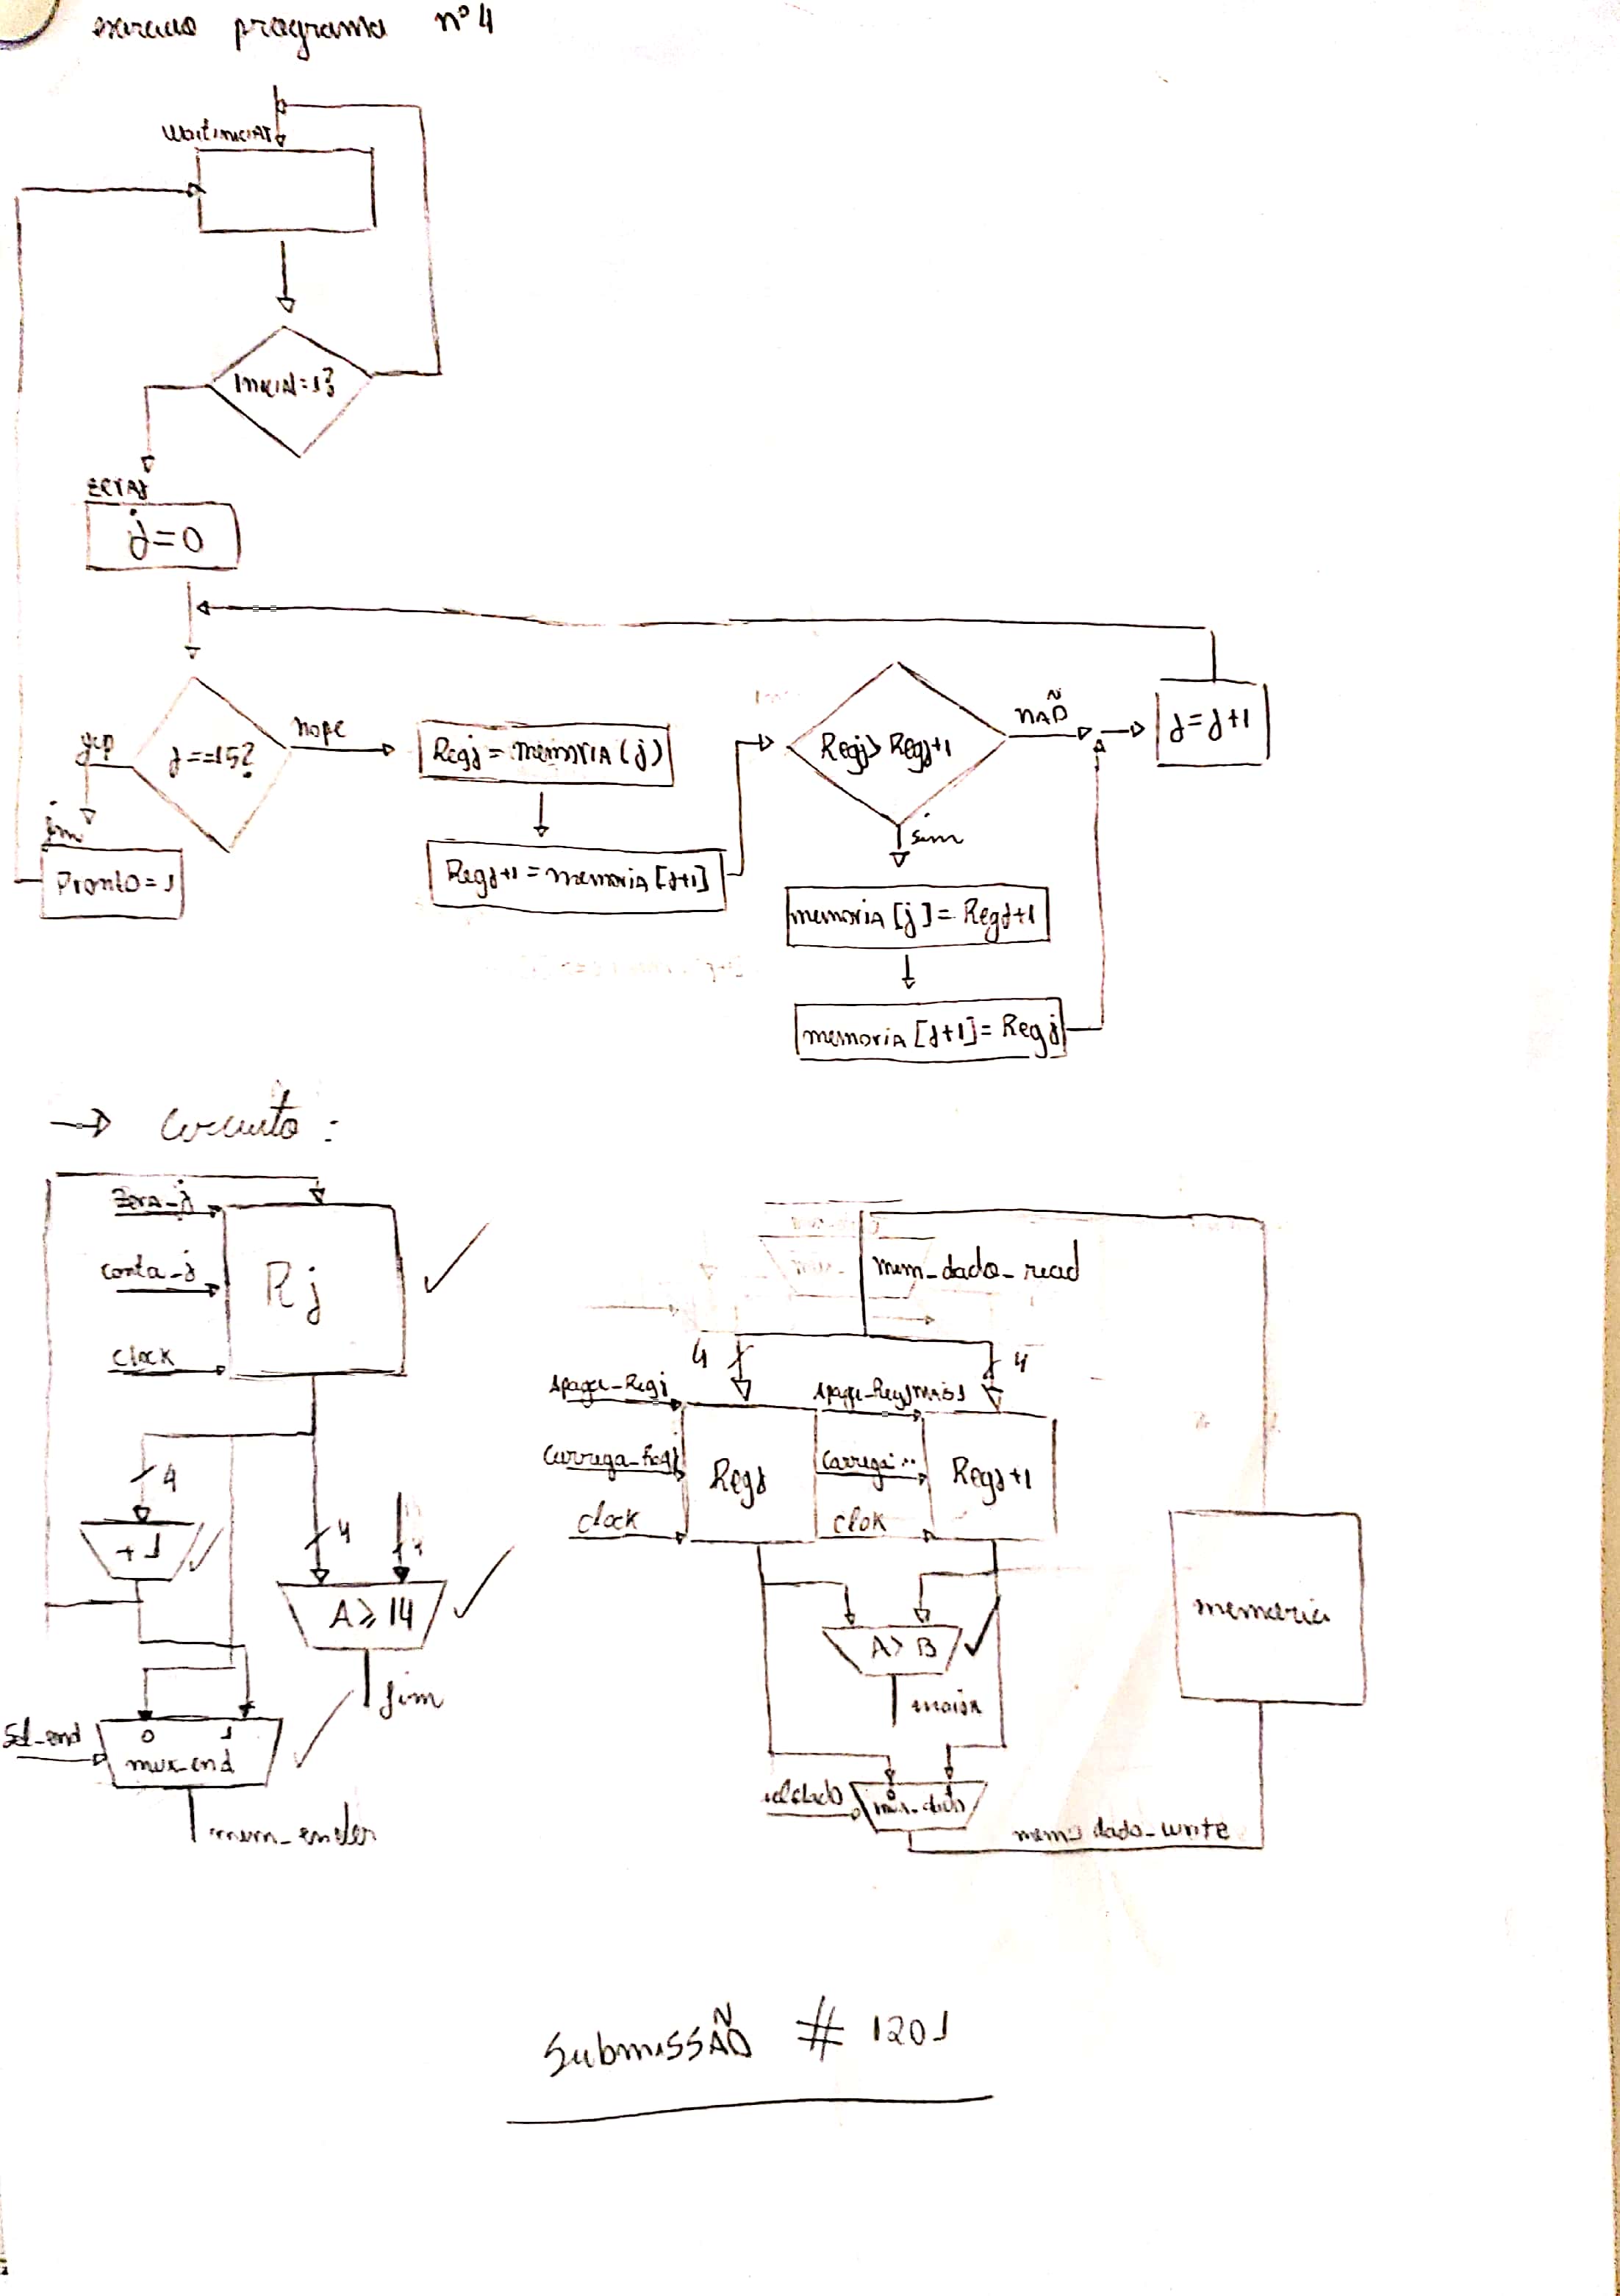 programa nº 4
Inicia=1?
j=0
j==15?
nope
yep
fim
Pronto=1
Regj = memoria(j)
Regj+1 = memoria[j+1]
Regj> Regj+1
NÃO
sim
j=j+1
memoria [j]= Regj+1
memoria [j+1]= Regj
→ Circuito :
Zera_j
conta_j
clock
Rj
4
+1
4
4
A≥14
fim
Sel_end
0 1
mux_end
mem_ender
mem_dado_read
4
4
Apaga_Regj
Carrega_Regj
clock
Regj
Apaga_RegjMAIS1
Carrega..
clok
Regj+1
A> B
maior
seldado
0 1
mux_dado
mem_dado_write
memoria
Submissão # 1201